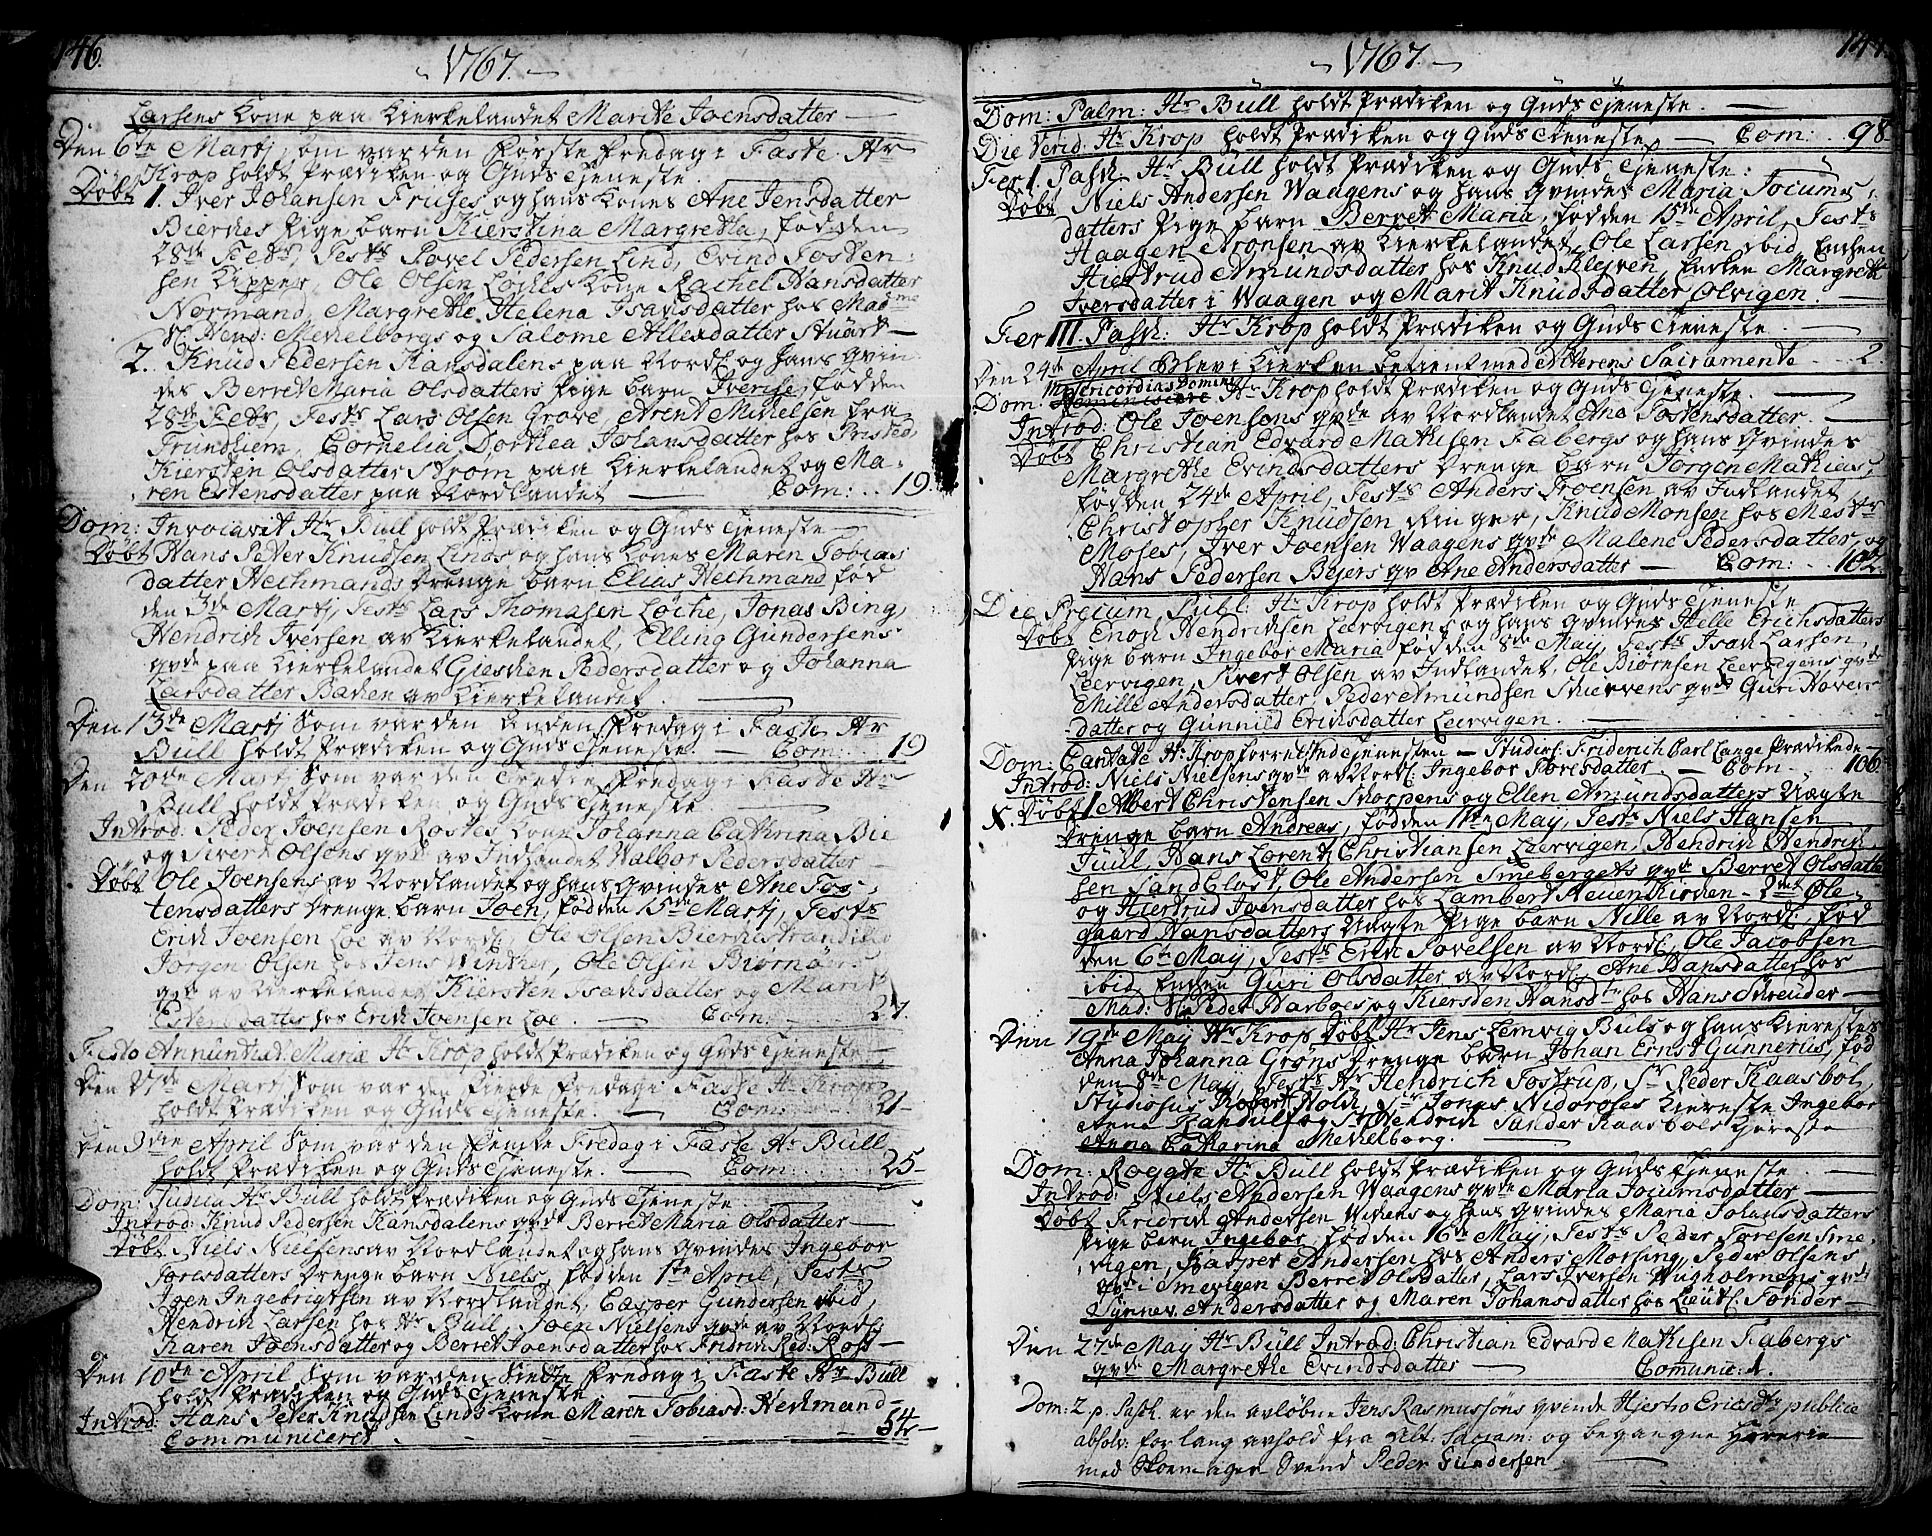 146.
1767.
Larsens Kone paa Kierkelandet Marite Joensdatter
Den 6te Martj, som var den første Fredag i Faste Hr
Krop holdt Prædiken og Guds Tjeneste
Døbt 1. Iver Johansen Frises og hans Kones Ane Jensdatter
Bierches Pige barn Kierstina Margretha, fød den
28de Febr, Test: Povel Pedersen Lind, Evind Tosten-
sen Kipper, Ole Olsen Løches Kone Rachel Hansdatter
Normand, Margrethe Helena Isachsdatter hos Madme
Sl. Hend: Mechelborgs og Salome Allexdatter Stuart
2. Knud Pedersen Kansdalens paa Nordl og hans Qvin
des Berret Maria Olsdatters Pige barn Iverise, fød den
28de Febr, Test Lars Olsen Grove, Arent Michelsen fra
Trundhiem, Cornelia Dorthea Johansdatter hos Prested
Kiersten Olsdatter Strøm paa Kierkelandet og Ma-
ren Estensdatter paa Nordlandet Com: 19.
Dom: Invocavit Hr Bull holdt Prædiken og Guds Tjeneste
Døbt Hans Peter Knudsen Linds og hans Kones Maren Tobias
datter Hechmands Drenge barn Elias Hechmand fød
den 3de Martj, Test: Lars Thomasen Løche, Jonas Bing,
Hendrich Iversen av Kierkelandet, Elling Gundersens
qvde paa Kierkelandet Giesken Pedersdatter og Johanna
Larsdatter Bachen av Kierkelandet.
Den 13de Martj som var den Anden Fredag i Faste Hr
Bull holdt Prædiken og Guds Tjeneste. Com: 19
Den 20de Martj som var den Tredie Fredag i Faste Hr
Bull holdt Prædiken og Guds Tjeneste
Introd: Peder Joensen Rostes Kone Johanna Cathrina Bie
og Sivert Olsens qvde av Indlandet Walbor Pedersdatter
Døbt Ole Joensens av Nordlandet og hans Qvindes Ane Tos
tensdatters Drenge barn Joen, fød den 15de Martj, Test
Erich Joensen Loe av Nordl, Ole Olsen Bierchestrand
Jørgen Olsen hos Jens Winther, Ole Olsen Biørnøer
qvde av Kierkelandet Kiersten Isachsdatter og Marit
Estensdatter hos Erich Joensen Loe Com: 27.
Festo Annuntiat: Mariæ Hr Krop holdt Prædiken og Guds Tjeneste
Den 27de Martj som var den Fierde Fredag i Faste Hr Krop
holdt Prædiken og Guds Tjeneste. Com: 21
Den 3die April som var den Femte Fredag i Faste Hr Bull
holdt Prædiken og Guds Tjeneste. Com: 25
Dom: Judica Hr Bull holdt Prædiken og Guds Tjeneste
Introd: Knud Pedersen Kansdalens qvde Berret Maria Olsdatter
Døbt Niels Nielsens av Nordlandet og hans Qvindes Ingebor
Toresdatters Drenge barn Niels, fød den 1ste April, Test
Joen Ingebrigtsen av Nordlandet, Casper Gundersen ibid,
Hendrich Larsen hos Hr Bull, Joen Nielsens qvde av Nordl
Karen Joensdatter og Berret Joensdatter hos Fridrich Red: Rost
Den 10de April som var den Siette Fredag i Faste Hr Bull
holdt Prædiken og Guds Tjeneste
Introd: Hans Peter Knudsen Linds Kone Maren Tobiasd: Hechmand
Communiceret 54
147.
1767.
Dom: Palm: Hr Bull holdt Prædiken og Guds Tjeneste.
Die Virid: Hr Krop holdt Prædiken og Guds Tjeneste Com: 98
Fer I. Pasch Hr Bull holdt Prædiken og Guds Tjeneste:
Døbt Niels Andersen Waagens og hans Qvindes Maria Jocums
datters Pige barn Berret Maria, fød den 15de April, Test
Haagen Aronsen av Kierkelandet, Ole Larsen ibid, Enchen
Hiertrud Amundsdatter hos Knud Kleven, Enchen Margrethe
Iversdatter i Waagen og Marit Knudsdatter Ølvigen.
Fer III. Pasch: Hr Krop holdt Prædiken og Guds Tjeneste
Den 24de April Blev i Kierken betient med Alterens Sacramente 2
Dom. Misericordias Domini Hr Krop holdt Prædiken og Guds Tjeneste
Introd: Ole Joensens qvde av Nordlandet Ane Tostensdatter
Døbt Christian Edvard Mathisen Fabergs og hans Qvindes
Margrethe Evindsdatters Drenge barn Jørgen Mathias,
fød den 24de April, Test Anders Troensen av Indlandet
Christopher Knudsen Ringer, Knud Monsen hos Mestr
Moses, Iver Joensen Waagens qvde Malene Pedersdatter, og
Hans Pedersen Beyers qv Ane Andersdatter Com: 102.
Die Precium Publ: Hr Krop holdt Prædiken og Guds Tjeneste
Døbt Enoch Hendrichsen Leervigens og hans Qvindes Helle Erichsdatters
Pige barn Ingebor Maria fød den 8de May, Test: Isach Larsen
Leervigen, Sivert Olsen av Indlandet, Ole Biørnsen Leervigens qvde
Mille Andersdatter, Peder Amundsen Skiervens qvde Guri Hovers
datter og Gunnild Erichsdatter Leervigen.
Dom: Cantate Hr Krop forrettet Tjenesten – Studios: Friderich Carl Lange Prædikede
Introd: Niels Nielsens qvde av Nordl: Ingebor Toresdatter. Com 106
X. Døbt 1 Albert Christensen Skorpens og Ellen Amundsdatters Uægte
Drenge barn Andreas, fød den 11te May, Test: Niels Hansen
Juul, Hans Lorentz Christiansen Leervigen, Hendrich Hendrich
sen Sandblost, Ole Andersen Smebergets qvde Berret Olsdatter
og Hiertrud Joensdatter hos Lambert Neuenkirchen – 2det Ole
gaard Hansdatters Uægte Pige barn Nille av Nordl: fød
den 6te May, Test: Erich Povelsen av Nordl, Ole Jacobsen
ibid, Enchen Guri Olsdatter av Nordl, Ane Hansdatter hos
Mad: Sl: Peder Harboes og Kiersten Hansdtr hos Hans Skreüder
Den 19de May Hr Krop Døbt Hr Jens Lemvig Buls og hans Kierestes
Anna Johanna Grøns Drenge barn Johan Ernst Gunnerus, fød
den 8de May, Test: Hr Hendrich Tostrup, Sr Peder Kaasbøl,
Studiosus Robert Nold, Sr Jonas Nidorosses Kiereste Ingebor
Anna Randulf og Sr Hendrich Sander Kaasbøls Kiereste
Anna Catharina Mechelborg.
Dom: Rogate Hr Bull holdt Prædiken og Guds Tjeneste
Introd: Niels Andersen Waagens qvde Maria Jocumsdatter
Døbt Fridrich Andersen Wichens og hans Qvindes Maria Johansdatters
Pige barn Ingebor, fød den 16de May, Test: Peder Toresen Sme-
vigen, Casper Andersen hos Anders Morsing, Peder Olsens
qvde i Smevigen Berret Olsdatter, Lars Iversen Fugholmens qvde
Synnev Andersdatter og Maren Johansdatter hos Lieut: Fonder
Den 27de May Hr Bull Introd: Christian Edvard Mathisen Fabergs
qvde Margrethe Evindsdatter Comunic: 1.
Dom: 2 p. Pasch. er den avløbne Jens Rasmussøns qvinde Hjestro Ericsdtr publice
absolv: for lang avhold fra Alt. Sacram: og begangne Horerie
med Skoemager Svend Peder Gundersen